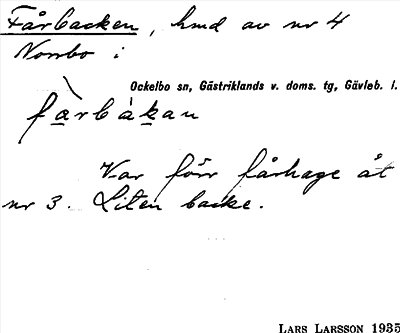 Fårbacken, hmd av nr 4
Norrbo :
Ockelbo sn, Gästriklands v. doms. tg, Gävleb. l.
fàrbákan
Var förr fårhage åt
nr 3. Liten backe.
LARS LARSSON 1935